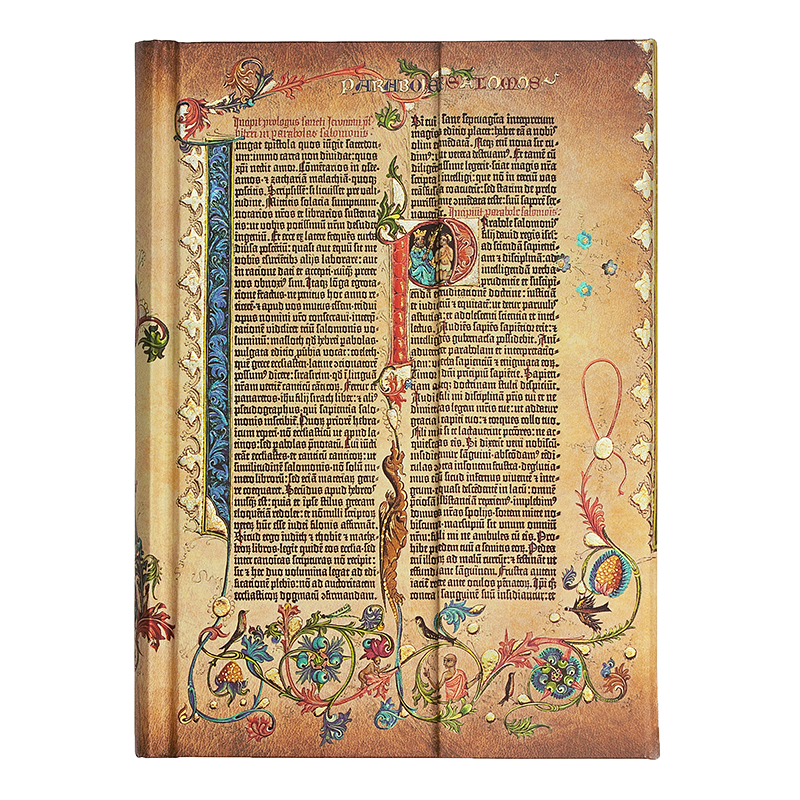 PARABOLE SALOMOIS
Incipit prologus sancti Jeronimi
in parabolas salomonis
Iungat epistola quos iũgit sacerdo-
um: immo carta non diuidat: quos
xp̃i nectit amor. Cõmẽtarios in osee-
amos · ⁊ zachariam malachiã · quoqȝ
poscitis. Scripsissẽ: si licuisset pre vali-
tudine. Mittitis solacia sumptuum ·
notarios nr̃os et librarios sustenta-
tis: ut vobis potissimũ nr̃m desudet
ingeniũ. Et ecce ex latere frequẽs turba
diu̾sa poscẽtiũ: quasi aut equũ sit me
vobis esuriẽtibȝ alijs laborare: aut
in racione dati et accepti · cuiq̃ȝ preter
vos obnoxi9 sim. Itaqȝ lõga egrota-
tione fractus · ne penitus hoc anno re-
ticerẽ · ⁊ apud vos mutus essem · tridui
opus nomini vr̃o consecraui · interp̃-
tationẽ videlicet triũ salomonis vo-
luminũ: masloth qd̃ hebrei parabolas ·
vulgata editio prõbia vocat: coeleth ·
quẽ grece ecclesiasten · latine cõcionatorẽ
possum9 dicere: sirasirim · qd̃ ĩ linguã
nr̃am vertit̃ canticũ cãticoȝ. Fertur et
panaretos · ihũ filij sirach liber: ⁊ ali9
pseudographus · qui sapientia salo-
monis inscribit̃. Quoȝ priorẽ hebra-
icum reperi · nõ ecclesiasticũ ut apud la-
tinos: sed parabolas p̃notatũ. Cui iũcti
erãt ecclesiastes · et canticũ canticoȝ: ut
similitudinẽ salomonis · nõ solũ nu-
mero librorũ: sed eciã materiaȝ gene-
re coequaret. Secũdus apud hebreos
nusq̃ȝ est: quia et ipse stilus grecam
eloquẽtiã redolet: et nõnulli scriptoȝ
vereȝ hũc esse iudei filonis affirmãt.
Sicut ergo iudith ⁊ thobie ⁊ macha-
beoȝ libros · legit quidẽ eos eccl̃ia · sed
inter canonicas scripturas nõ recipit:
sic ⁊ hec duo volumina legat ad edi-
ficationẽ plebis: nõ ad auctoritatem
eccl̃iasticoȝ dogmatũ ↄfirmandam.
Si cui sane septuaginta interpretum
magis editio placet: habet eã a nobis
olim emẽdatã. Neqȝ em̃ noua sic cu-
dim9: ut vetera destruam9. Et tamẽ cũ
diligẽtissime legerit · sciat magis nr̃a
scripta intelligi: que nõ in terciũ vas
trãsfusa coacuerĩt: sed statim de prelo
purissime ↄmẽdata teste: suũ saporẽ ser-
Incipiũt parabole salomõis.
Parabole salomonis
filij dauid regis isrl̃:
ad sciendã sapienti-
am ⁊ disciplinã: ad
intelligendã verba
prudentie et suscipi-
endã eruditationẽ doctrine: iusticiã
et iudiciũ ⁊ equitatẽ: ut detur paruulis
astutia: et adolescenti sciẽtia et intel-
lectus. Audiẽs sapiẽs sapiẽtior erit: ⁊
intelligẽs gubernacula possidebit. Ani-
maduertet parabolam et interpretatio-
nem: verba sapientiũ ⁊ enigmata eorȝ.
Timor dñi principiũ sapiẽtie. Sapien-
tiam atqȝ doctrinam stulti despiciũt.
Audi fili mi disciplinã pr̃is tui et ne
dimittas legem mr̃is tue: ut addatur
gracia capiti tuo: ⁊ torques collo tuo.
Fili mi si te lactauerint pctõres: ne ac-
quiescas eis. Si dixerĩt veni nobiscũ ·
insidiemur sãguini · abscõdam9 tẽdi-
culas ↄtra insontem frustra · deglutia-
m9 eũ sicud infernus viuentẽ ⁊ inte-
grũ · quasi descẽdentẽ in lacũ: omnẽ
p̃ciosã substantiã reperiem9 · implebim9
domos nr̃as spolijs · sortem mitte no-
biscum · marsupiũ sit unum omniũ
nr̃m: fili mi ne ambules cũ eis. Pro-
hibe pedem tuũ a semitis eoȝ. Pedes
em̃ illoȝ ad malũ currũt: ⁊ festinãt ut
effundant sanguinem. Frustra autem
iacit̃ rete ante oculos pẽnatoȝ. Ip̃i qȝ
contra sanguinẽ suũ insidiantur: et